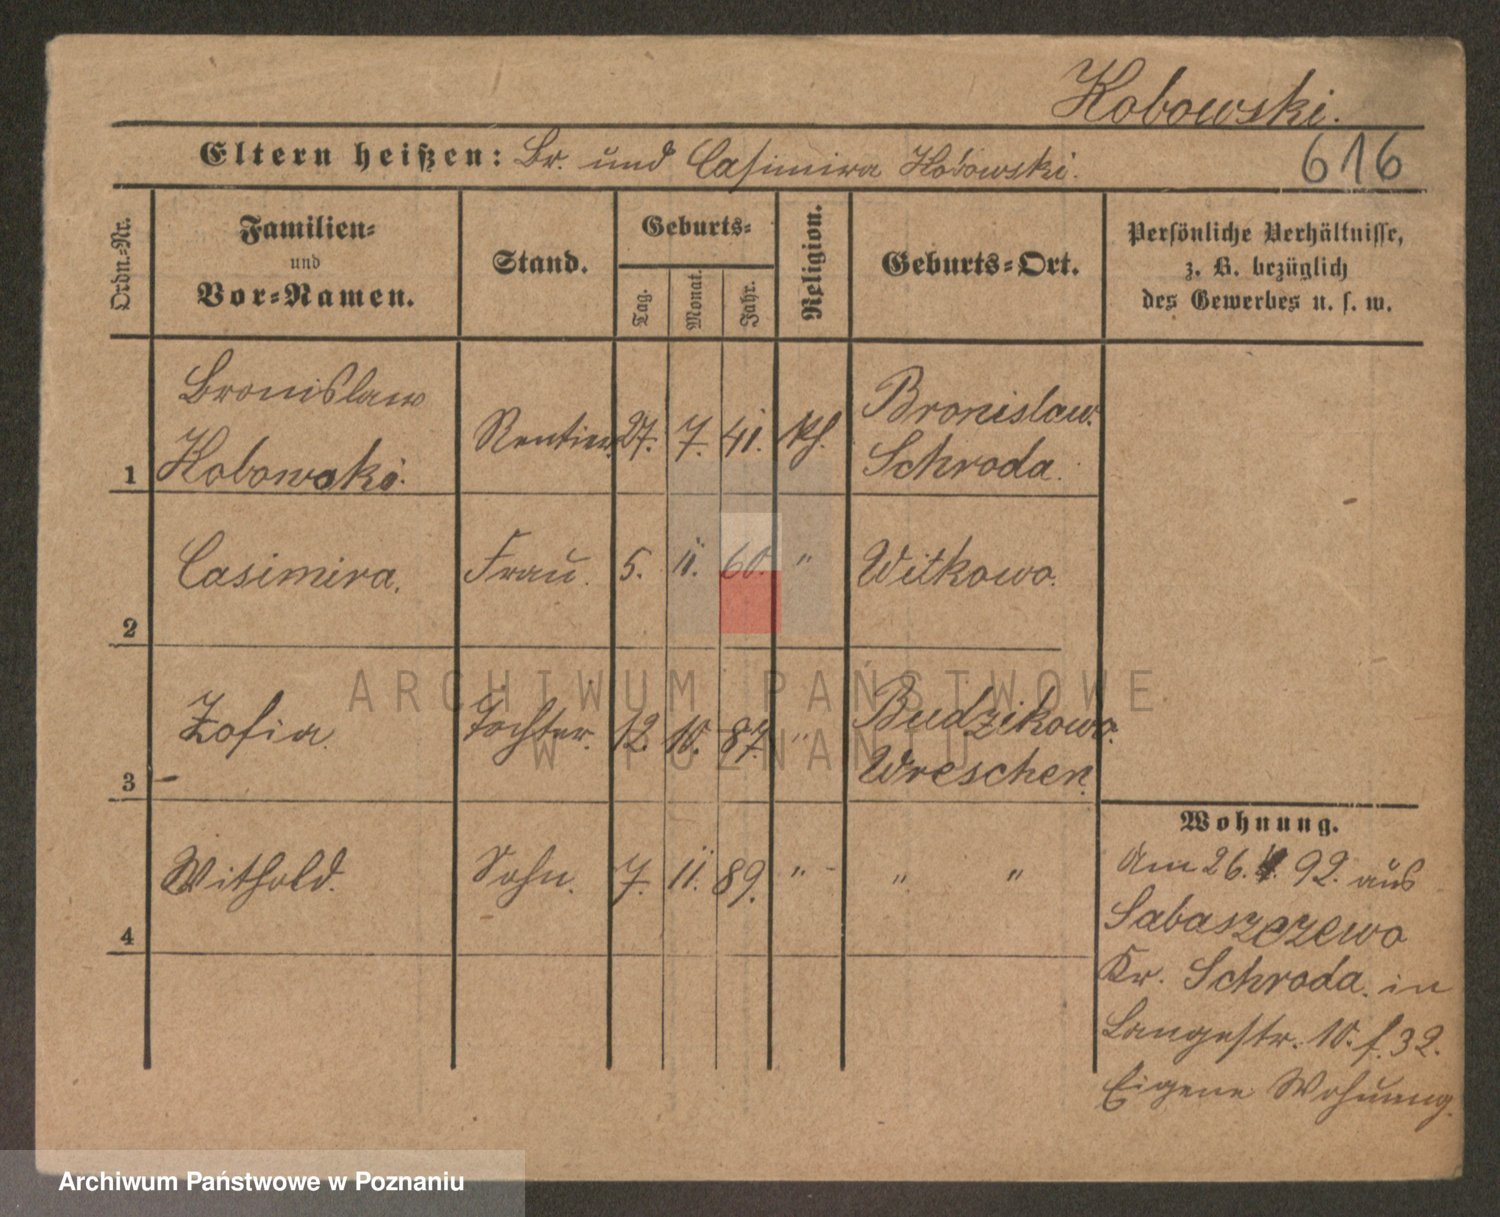 Kobowski.
Eltern heißen: Br. und Casimira Kobowski.
616
Ordn.-Nr.
Familien-
und
Vor-Namen.
Stand.
Geburts-
Tag.
Monat.
Jahr.
Religion.
Geburts-Ort.
Persönliche Verhältnisse,
z. B. bezüglich
des Gewerbes u. s. w.
Bronislaw
Kobowski.
1
Rentier.
27. 7. 41.
kh.
Bronislaw.
Schroda.
Casimira.
2
Frau.
5. 11. 60. "
Witkowo.
Zofia.
3
Tochter.
12. 10. 87. "
Budzikowo.
Wreschen.
Withold.
4
Sohn.
7. 11. 89. " " "
Wohnung.
Am 26. 92. aus
Sabaszczewo
Kr. Schroda. in
Langestr. 10. f. 32.
Eigene Wohnung.
ARCHIWUM PAŃSTWOWE
W POZNANIU
Archiwum Państwowe w Poznaniu